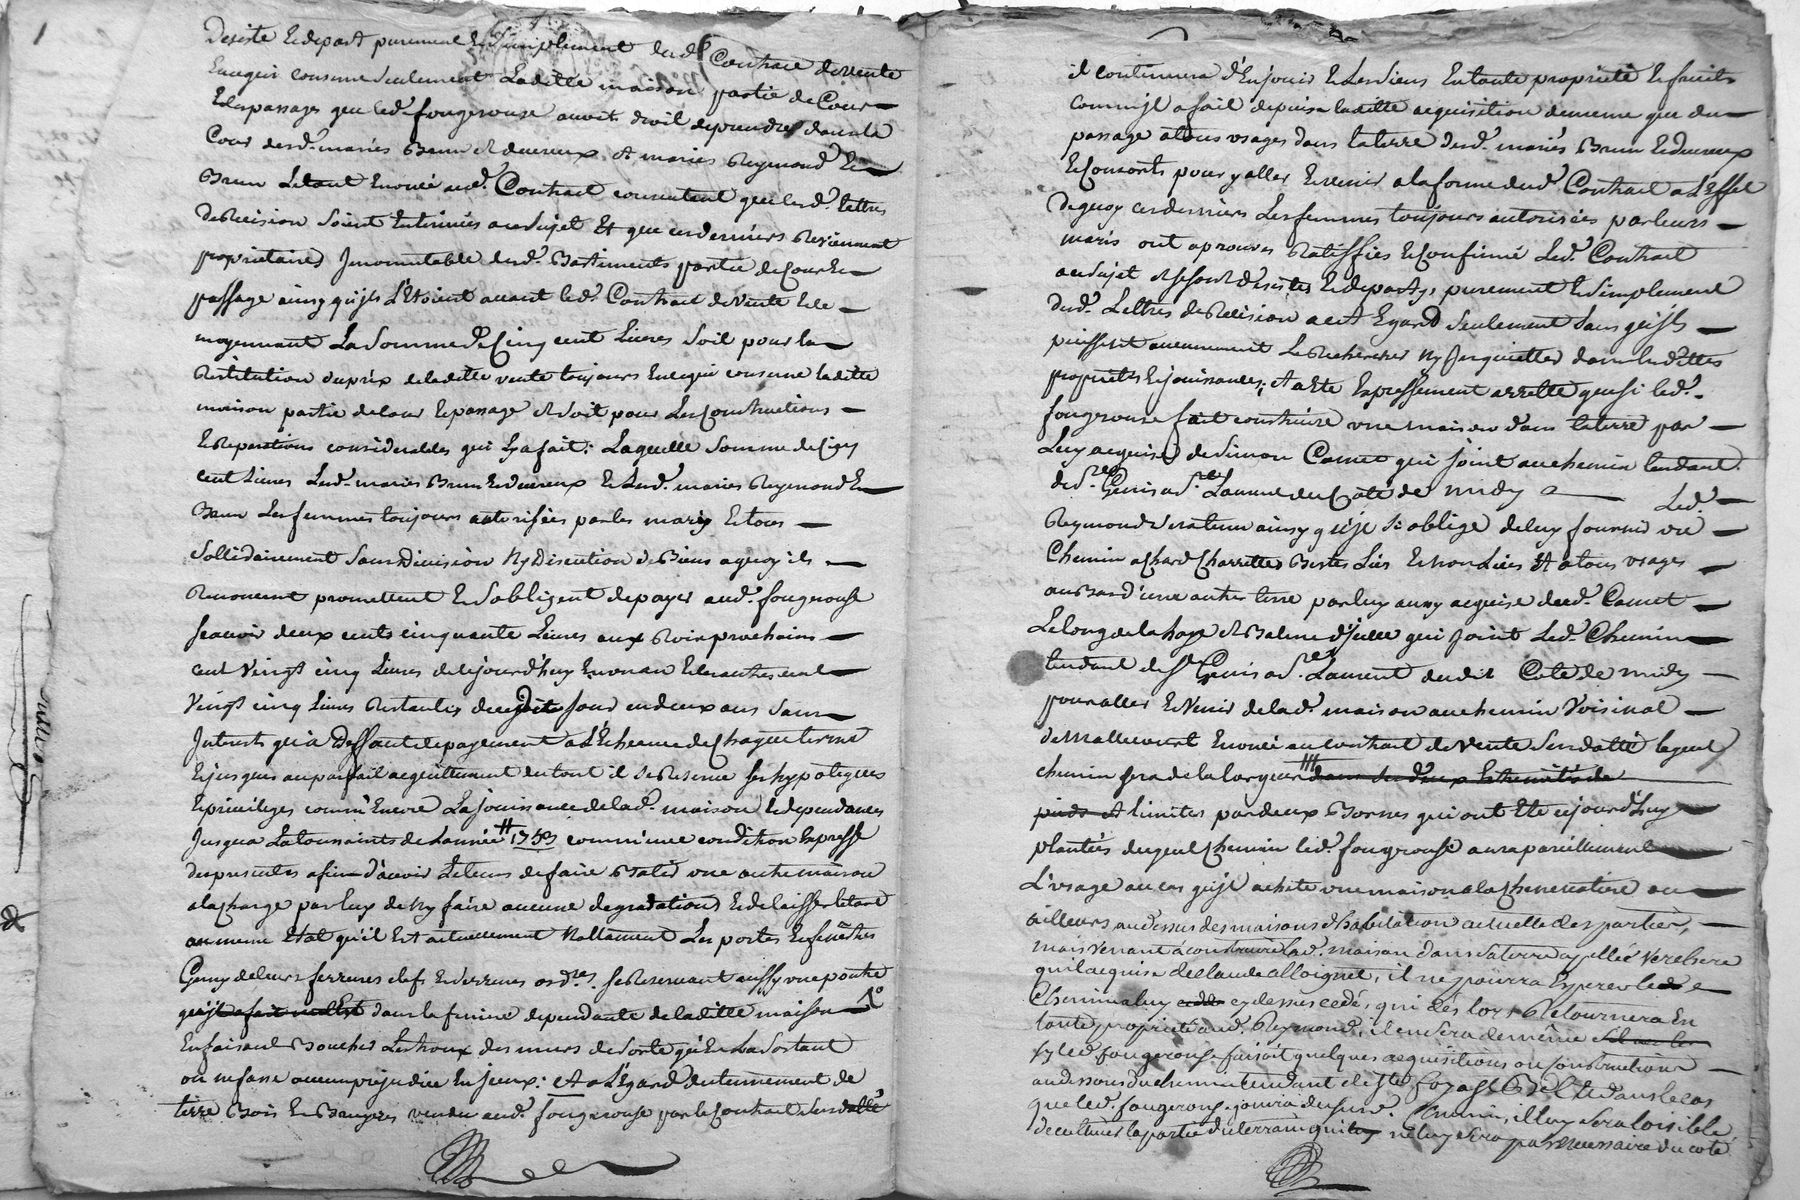 1
desiste & depart purement & simplement dud. Contract de vente
en ce qui concerne seulement laditte maison partie de Cour
& du passage que led. fougerouse avoit droit de prendre dans la
Cour desd. mariés Brun & ducreux et mariés Reymond &
Brun le tout enoncé aud. Contract consentent que lesd. lettres
de Récision soient enterinées a ce sujet et que ces derniers Reviennent
propriétaires Incommutable desd. Bastiments partie de Cour &
passage ainsy qu'jls l'etoient avant led. Contract de vente & ce
moyennant la somme de Cinq cent Livres soit pour la
Restitution du prix de laditte vente toujours en ce qui concerne laditte
maison partie de Cour & passage & soit pour les Constructions
& Reparations considerables qui y a fait; Laquelle somme de Cinq
cent Livres lesd. mariés Brun & ducreux & lesd. mariés Reymond &
Brun les femmes toujours autorisées par les maris & tous
sollidairement sans Division Ny Discution de Biens a quoy ils
Renoncent promettent & s'obligent de payer aud. fougerouse
scavoir deux cents cinquante Livres aux Rois prochains
cent vingt cinq Livres de ce jourd'huy en un an & les autres cent
vingt cinq Livres Restantes de ce dit jour en deux ans sans
Interests qu'a Deffaut de payement a l'Echeance de Chaque terme
& jusques au parfait acquittement du tout il se Reserve ses hypoteques
& privileges comm'encore la jouissance de lad. maison & dependances
Jusqu'a la toussaints de l'année # 1753 comm'une condition Expresse
des presentes afin d'avoir le tems de faire Batir une autre maison
a la charge par luy de Ny faire aucune degradations & de laisser le tout
au meme Etat qu'il Est actuellement Nottament les portes & fenêtres
Garny de leurs ferrures clefs & verroux ord.res se Reservant aussy une poutre
qu'jl a fait dans la feniere dependante de laditte maison 1°
En faisant Boucher les troux des murs de sorte qu'En la sortant
on ne fasse aucun prejudice En jceux; et a l'Egard du tenement de
terre Bois & Bruyeres vendu aud. fougerouse par le Contract susdatté
il continuera d'En jouir & les siens en toute propriété & fruits
comm'jl a fait depuis laditte acquisition de meme que du
passage a tous usages dans la terre desd. mariés Brun & ducreux
& Consorts pour y aller & venir a la forme dud. Contract a l'Effet
de quoy ces derniers les femmes toujours autorisées par leurs
maris ont aprouvés Ratiffiés & Confirmé led. Contract
au sujet & se sont desistés & departys purement & simplement
desd. Lettres de Récision a cet Egard seulement sans qu'jls
puissent aucunement le Rechercher Ny Jnquietter dans lesdittes
propriétés & jouissances; et a Eté Expressement arretté que si led.
fougerouse fait construire une maison dans la terre par
Luy acquise de Simon Camet qui joint au chemin tendant
de St Genis a St. Laurent du Côté de midy a led.
Reymond & sa tenu ainsy qu'jl s'oblige de luy fournir un
Chemin a Chard Charrettes Bestes Liés & non Liés et a tous usages
au Bas d'une autre terre par luy aussy acquise dud. Camet
Le long de la haye & Balme d'jcelle qui joint led. Chemin
tendant de St. Genis a St. Laurent dudit Côté de midy
pour aller & venir de lad. maison au chemin Voisinal
de Mallecourt Enoncé au Contract de vente susdatté lequel
chemin sera de la largeur # dans ses deux Extremités de
pieds et limites par deux Bornes qui ont Eté cejourd'huy
plantés duquel Chemin led. fougerouse aura pareillement
L'usage au cas qu'jl achete une maison a la Cheneviatiere ou
ailleurs au dessus des maisons d'habitation actuelle des parties,
mais venant à construire lad. maison dans sa terre appellée Verchere
qu'il acquise de Claude alloignet, il ne pourra Exercer led.
Chemin a luy cy dessus cedé, qui dès lors Retournera En
toute propriété aud. Reymond, il en sera de même
sy led. fougerouse faisoit quelques acquisitions ou constructions
au dessous du chemin tendant de ste foy a St. & dans le cas
que led. fougerouse jouira dususd. Chemin, il luy sera loisible
de cultiver la partie du terrain qui ne luy sera pas necessaire du coté